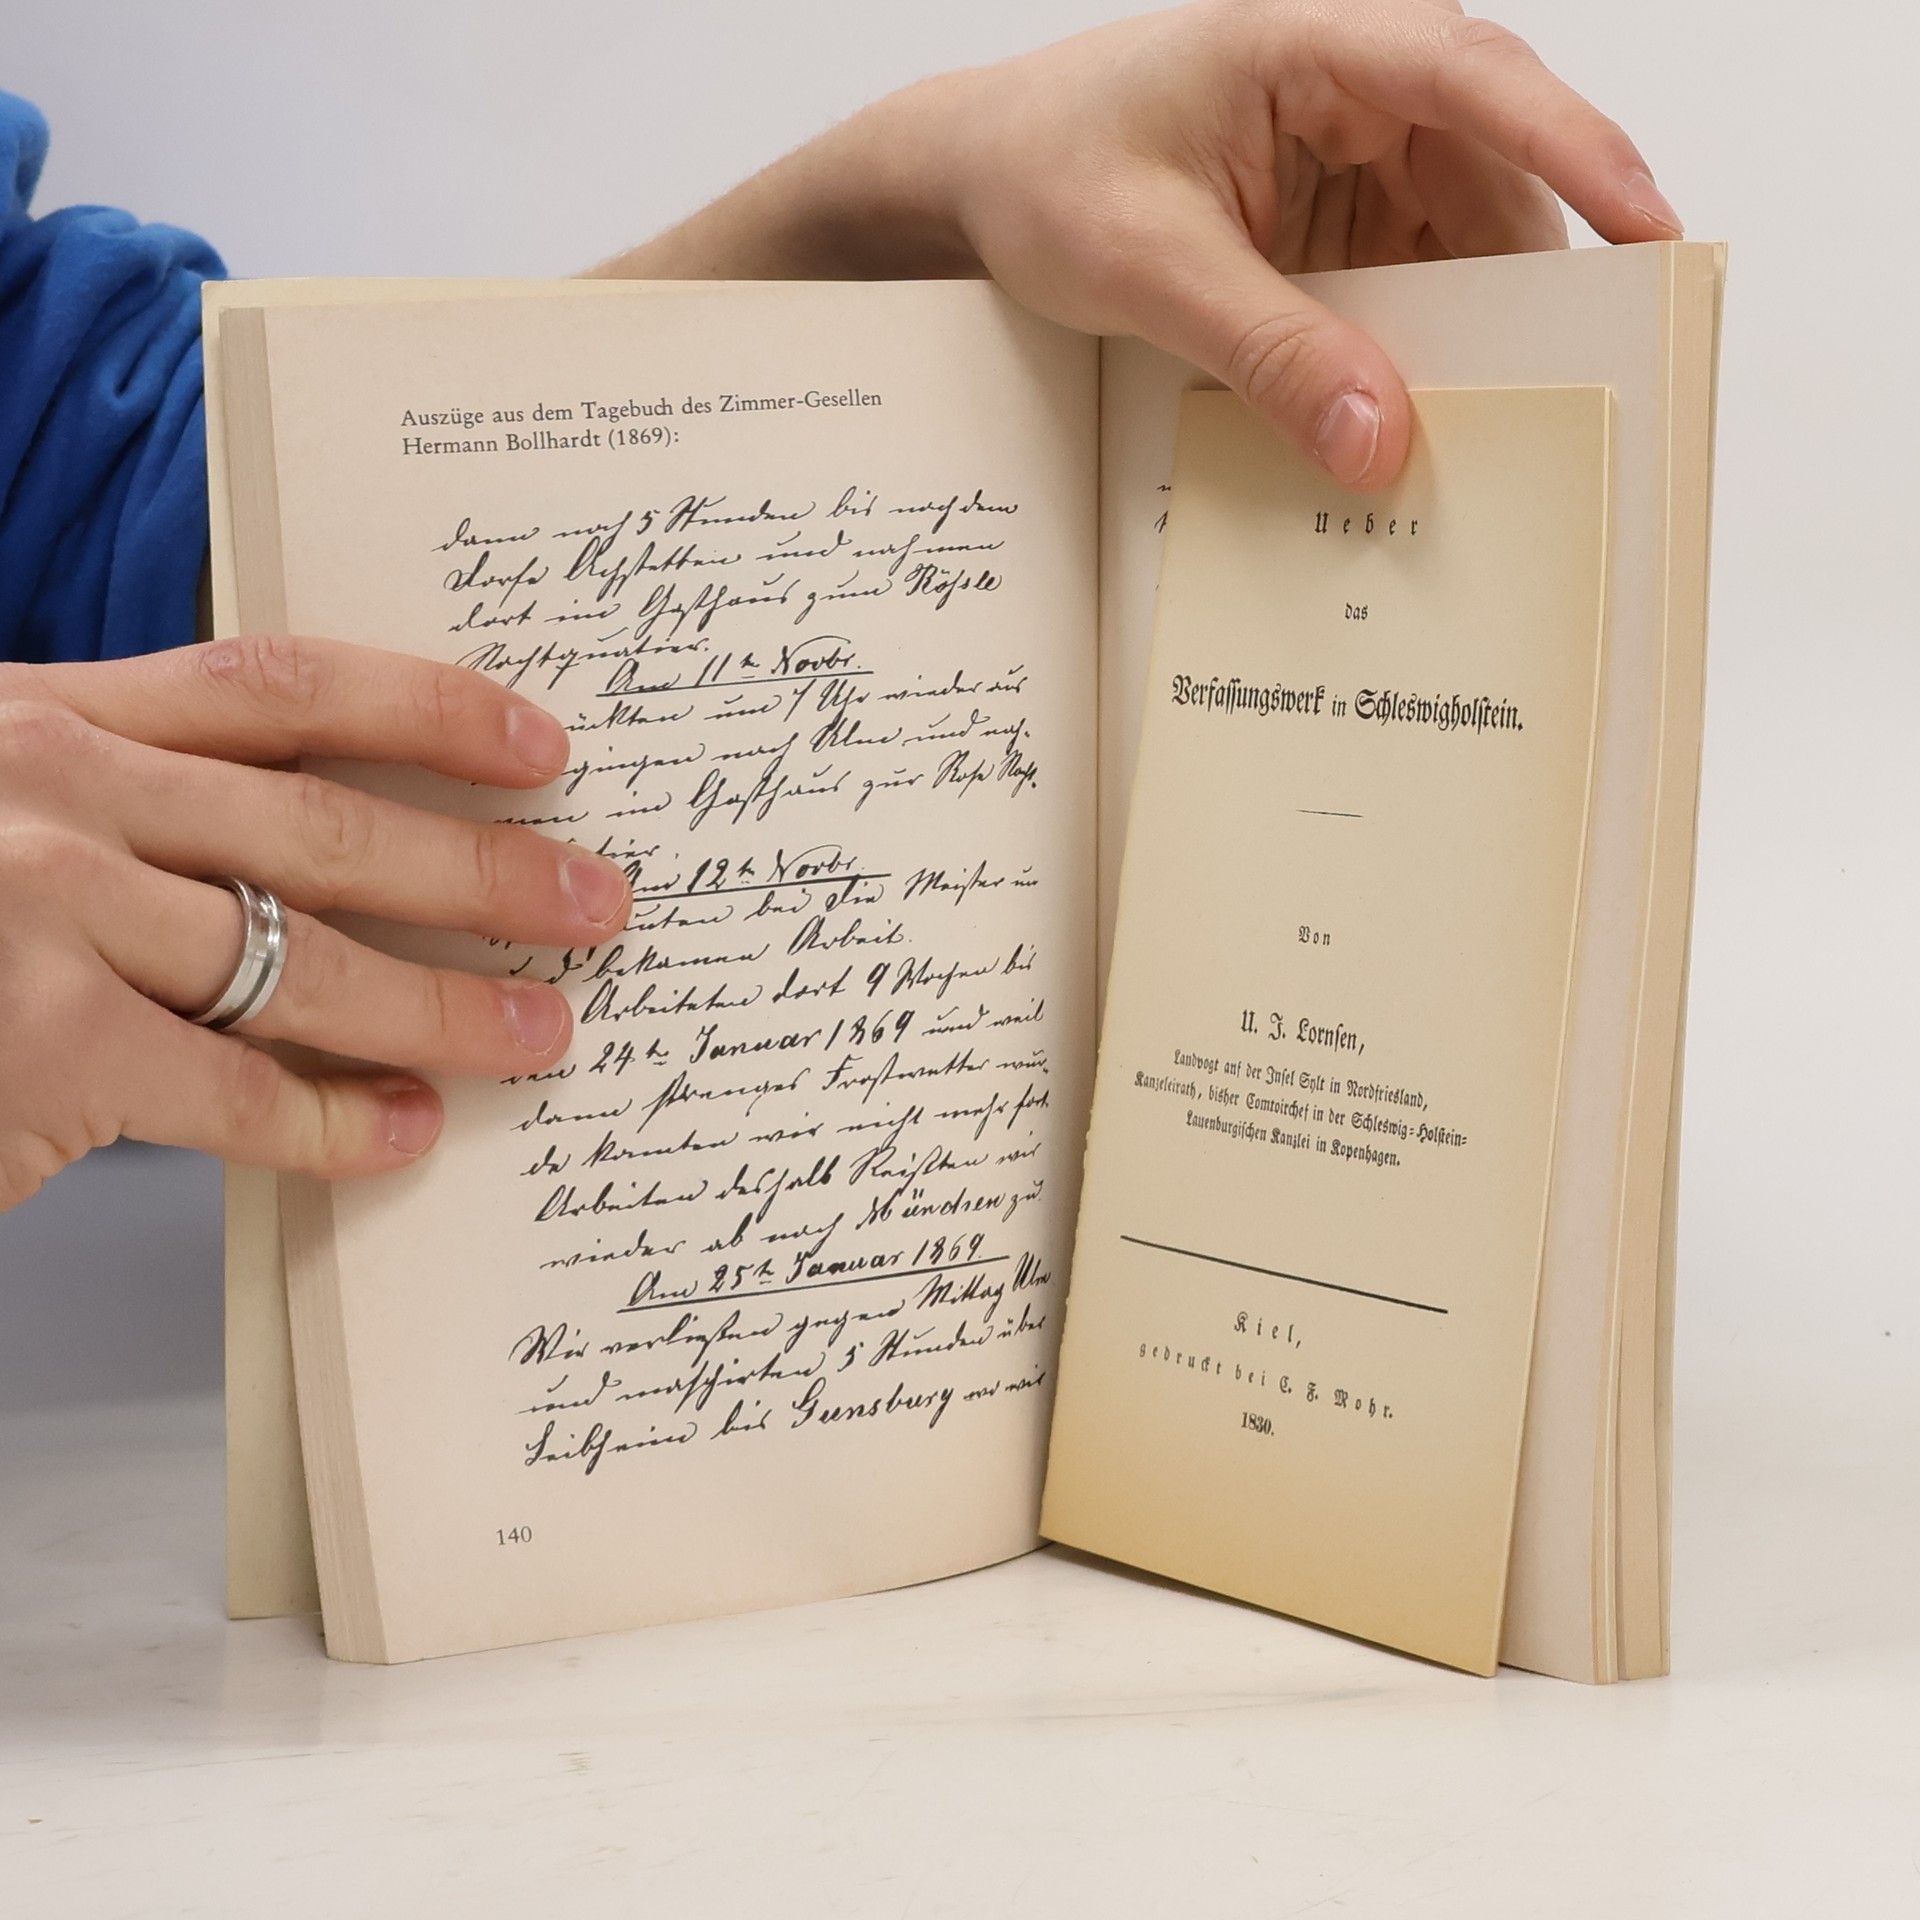 Auszüge aus dem Tagebuch des Zimmer-Gesellen
Hermann Bollhardt (1869):
dann noch 5 Stunden bis nach dem
Dorfe Achstetten und nahmen
dort im Gasthaus zum Rößle
Nachtquatier.
Am 11tn Novbr.
ückten um 7 Uhr wieder aus
gingen nach Ulm und nah-
men im Gasthaus zur Rose Nacht-
tier.
Am 12tn Novbr.
uten bei Die Meister un
d bekamen Arbeit.
Arbeiteten dort 9 Wochen bis
den 24tn Januar 1869 und weil
dann strenges Frostwetter wur-
de konnten wir nicht mehr fort
Arbeiten deshalb Reißten wir
wieder ab nach München zu.
Am 25tn Januar 1869.
Wir verließen gegen Mittag Ulm
und maschirten 5 Stunden über
Leibheim bis Gunsburg wo wir
140
Ueber
das
Verfassungswerk in Schleswigholstein.
Von
U. J. Lornsen,
Landvogt auf der Insel Sylt in Nordfriesland,
Kanzeleirath, bisher Comtoirchef in der Schleswig-Holstein-
Lauenburgischen Kanzlei in Kopenhagen.
Kiel,
gedruckt bei C. F. Mohr.
1830.